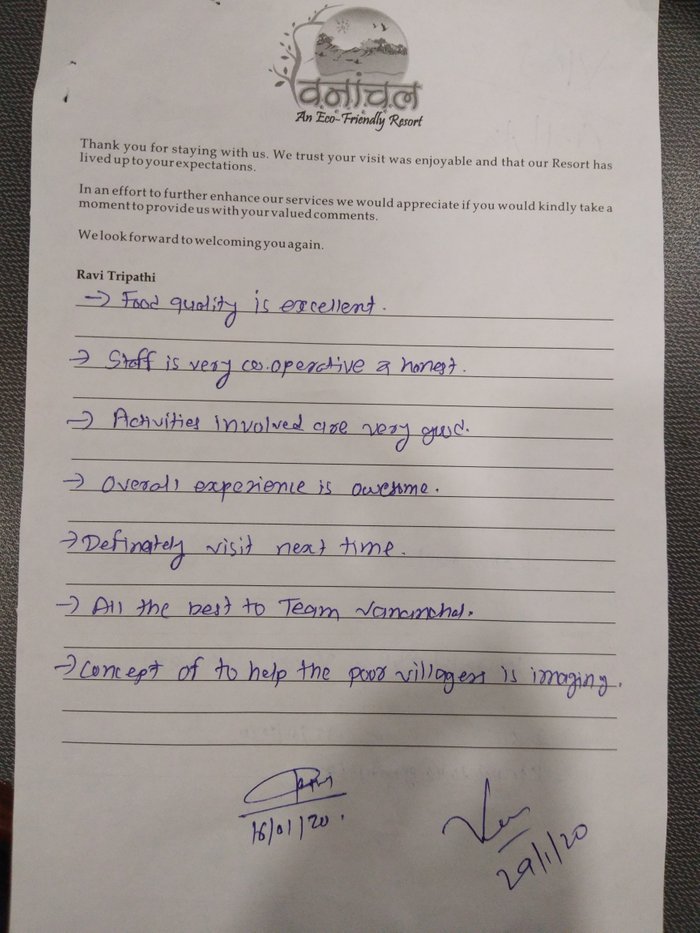 वनांचल
An Eco-Friendly Resort
Thank you for staying with us. We trust your visit was enjoyable and that our Resort has
lived up to your expectations.
In an effort to further enhance our services we would appreciate if you would kindly take a
moment to provide us with your valued comments.
We look forward to welcoming you again.
Ravi Tripathi
→ Food quality is excellent.
→ Staff is very co.operative & honest.
→ Activities involved are very good.
→ Overall experience is awesome.
→ Definately visit next time.
→ All the best to Team Vananchal.
→ Concept of to help the poor villagers is imaging.
16/01/20.
29/1/20